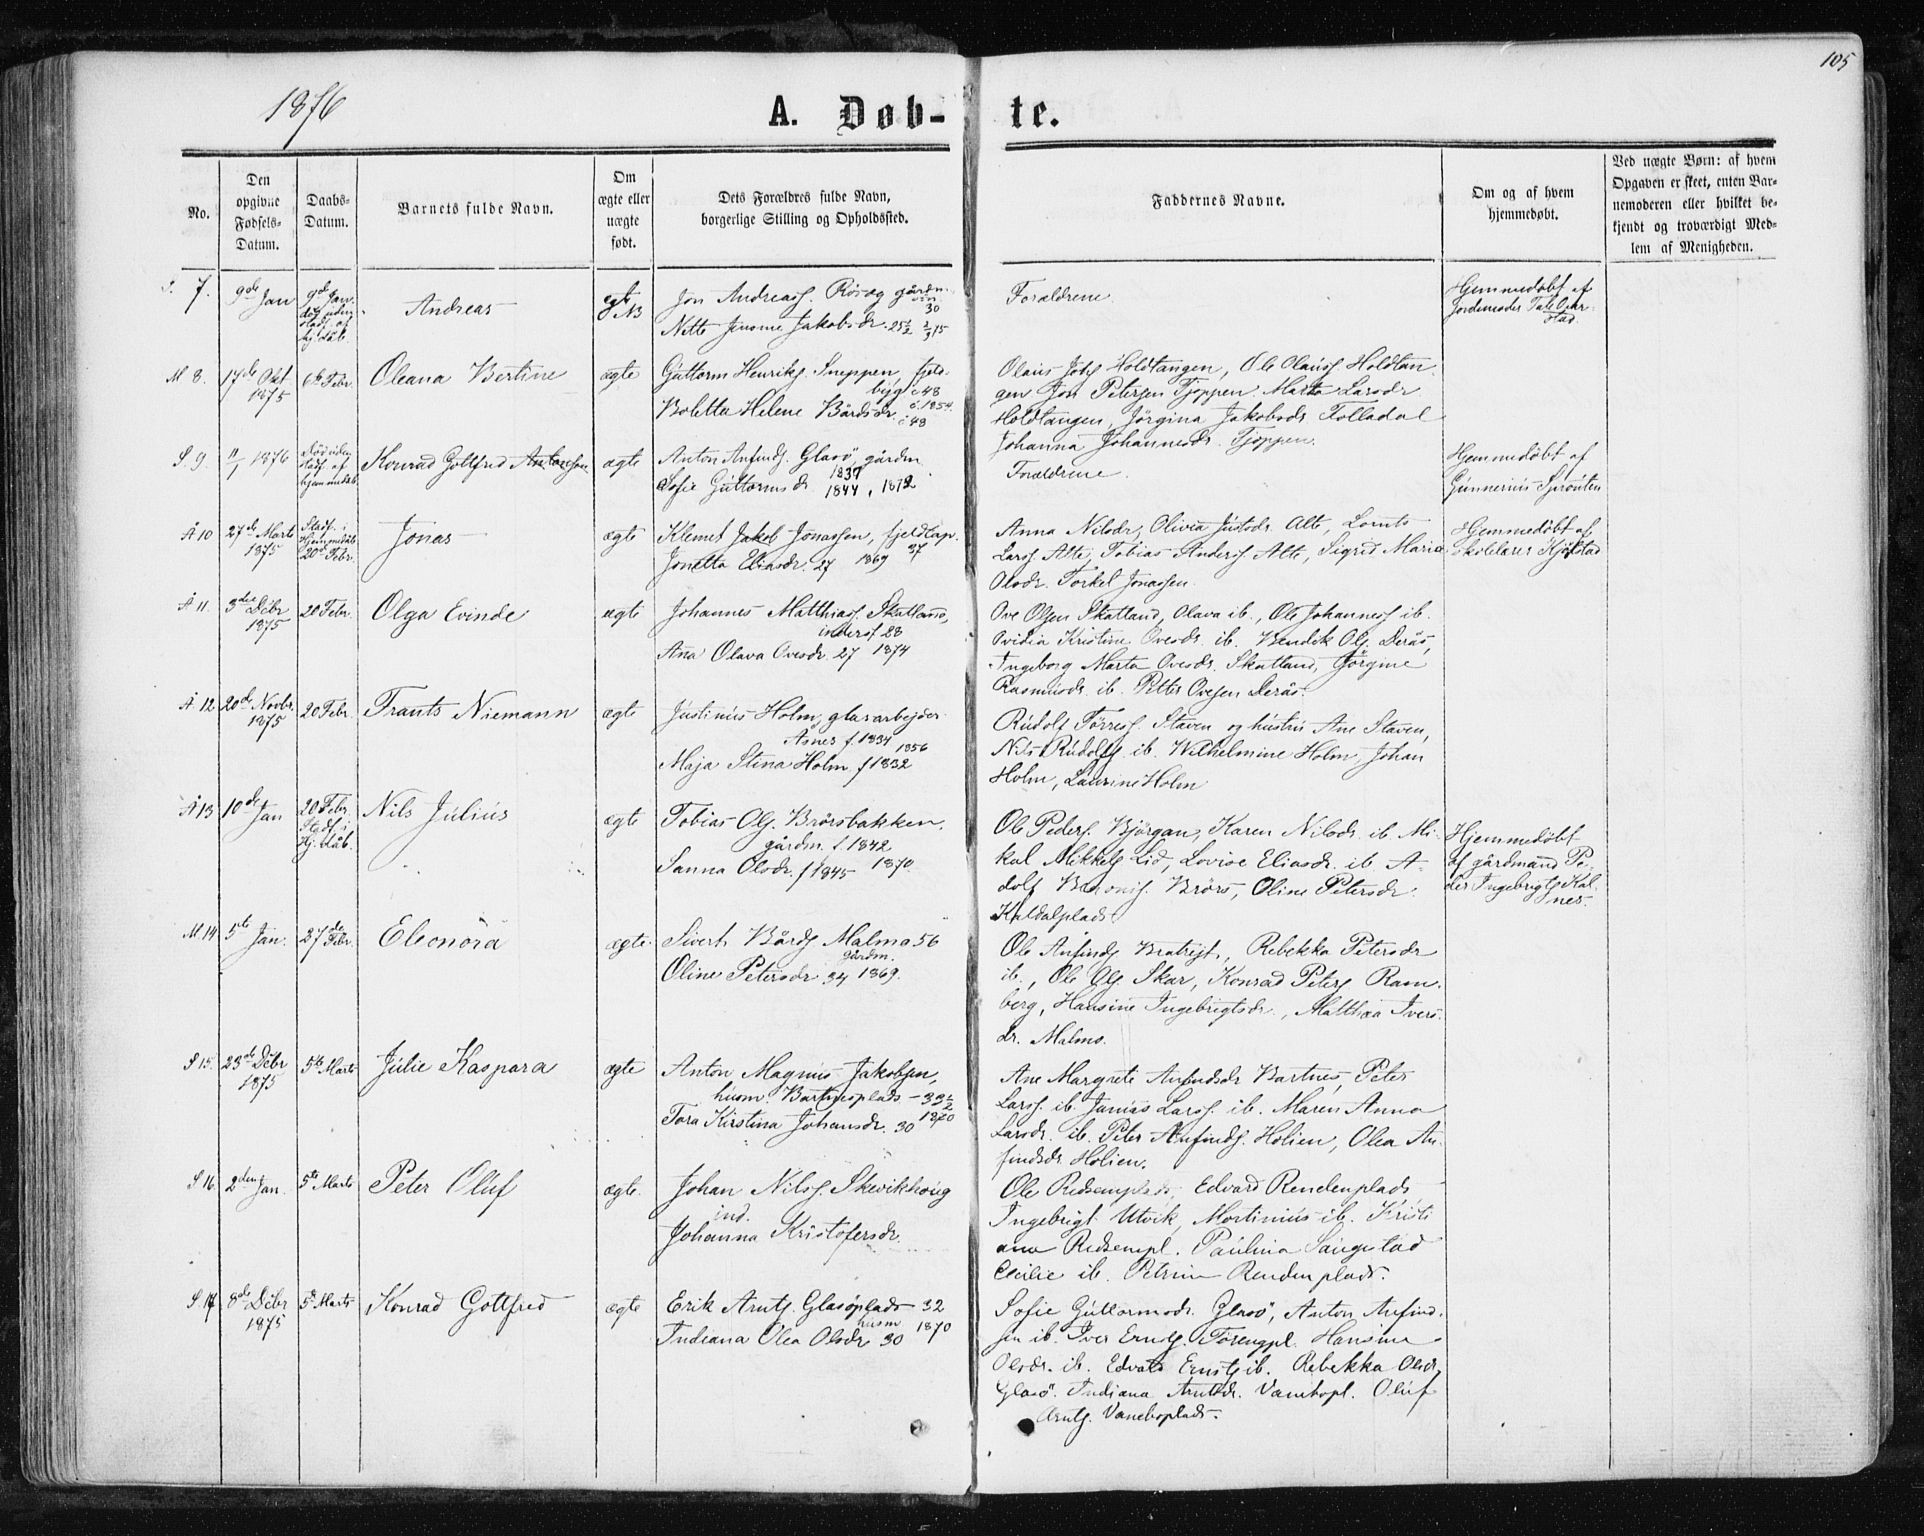 105
1876
A. Døb- te.
No.
Den opgivne Fødsels-Datum.
Daabs-Datum.
Barnets fulde Navn.
Om ægte eller uægte født.
Dets Forældres fulde Navn, borgerlige Stilling og Opholdssted.
Faddernes Navne.
Om og af hvem hjemmedøbt.
Ved uægte Børn: af hvem Opgaven er skeet, enten Barnemoderen eller hvilket bekjendt og troværdigt Medlem af Menigheden.
7. 9de Jan 9de Jan. død uden stadf. af hj.dåb. Andreas ægte NB Jon Andreass. Røseg gårdm. 30
Nette Jensine Jakobsdr. 25½
Forældrene.
Hjemmedøbt af
Jordemoder
M 8. 17de Okt 1875 6te Febr. Oleana Bertine ægte Guttorm Henriks. Sneppen, 48
Boletta Helene Bårdsdr. 48 1854
Olaus Johs Holdtangen, Ole Olauss Holdtan-
gen Jon Petersen Tjoppen. Marta Larsdr
Holdtangen, Jørgina Jakobsdr Folladal
Johanna Johannesdr. Tjoppen.
S. 9. 11/1 1876 Død uden stadf af hjemmedåb Konrad Gottfred Antonsen ægte Anton Anfinds. Glasö gårdm.
1837
Sofie Guttormsdr. 1844, 1872
Forældrene
Hjemmedøbt af
Gunnerius Sprouten
Å 10 27de Marts 1875 Stadf. i Hjemmedåb 20de Febr. Jonas ægte Klemet Jakob Jonassen, fjeldlap. 37
Jonetta Eliasdr. 27 1869
Anna Nilsdr, Olivia Justsdr. Alte, Lornts
Larss Alte, Tobias Anderss Alte, Sigrid Maria
Olsdr. Torkel Jonassen.
Hjemmedøbt af
Skolelærer Kjølstad
Å 11. 3die Débr 1875 20 Febr. Olga Evinde ægte Johannes Matthiass. Skatland,
inderst 28
Ana Olava Ovesdr. 27 1874
Ove Olsen Skatland, Olava ib., Ole Johanness ib.
Ovidia Kristine Ovesdr. ib. Bendik Ols. Derås,
Ingeborg Marta Ovesdr. Skatland, Jörgine
Rasmusdr. ib. Petter Ovesen Derås.
Å 12 20de Novbr. 1875 20 Febr. Frants Niemann ægte Justinus Holm, glasarbejder
Asnes f. 1834 1856
Maja Stina Holm f 1832
Rudolf Törress. Staven og hustru Ane Staven,
Nils Rudolfs. ib. Wilhelmine Holm, Johan
Holm, Laurine Holm
Å 13 10de Jan 20 Febr. Stadf. i Hj.dåb. Nils Julius ægte Tobias Ols. Brörsbakken.
gårdm. f. 1842
Sanna Olsdr. f 1845 1870
Ole Peders. Björgan, Karen Nilsdr. ib. Mi-
kal Mikkels Lid, Lovise Eliasdr. ib. A-
dolf Baronis. Brörs, Oline Petersdr.
Kaldalplads
Hjemmedøbt
af gårdmand Pe-
der Ingebrigts Kal-
nes.
M 14 5te Jan. 27de Febr. Eleonora ægte Sivert Bårds Malma 56
gårdm.
Oline Petersdr 34 1869.
Ole Anfinds Bratrejt., Rebekka Petersdr
ib., Ole Ols. Skar, Konrad Peters Ram-
berg, Hansine Ingebrigtsdr., Matthæa Ivers-
dr. Malmo.
S 15. 23de Débr 1875 5te Marts Julie Kaspara ægte Anton Magnus Jakobsen,
husm. Bartnesplads - 33½
Tora Kirstina Johansdr. 30 1870
Ane Margrete Anfindsdr Bartnes, Peter
Larss. ib. Janias Larss. ib. Maren Anna
Larsdr. ib. Peter Anfinds. Holien, Olea An-
findsdr Holien.
S 16. 2den Jan. 5te Marts Peter Oluf ægte Johan Nilss. Skevikhoug
ind.
Johanna Kristofersdr.
Ole Redsemplads, Edvard Rendenplads
Ingebrigt Utvik, Mortinius ib. Kristi
ane Redsempl. Paulina Saugestad
Cecilie ib. Petrine Rendenplads.
S 17 8de Débr 1875 5te Marts Konrad Gottfred ægte Erik Arnts. Glasöplads 32
husm
Indiana Olea Olsdr 30 1870
Sofie Guttormsdr. Glasö, Anton Anfind-
sen ib. Iver Ernsts. Törengpl. Hansine
Olsdr. ib. Edvard Ernsts ib. Rebekka Olsdr
Glasö. Indiana Arntsdr. Vanebopl. Oluf
Arnts. Vaneboplads.